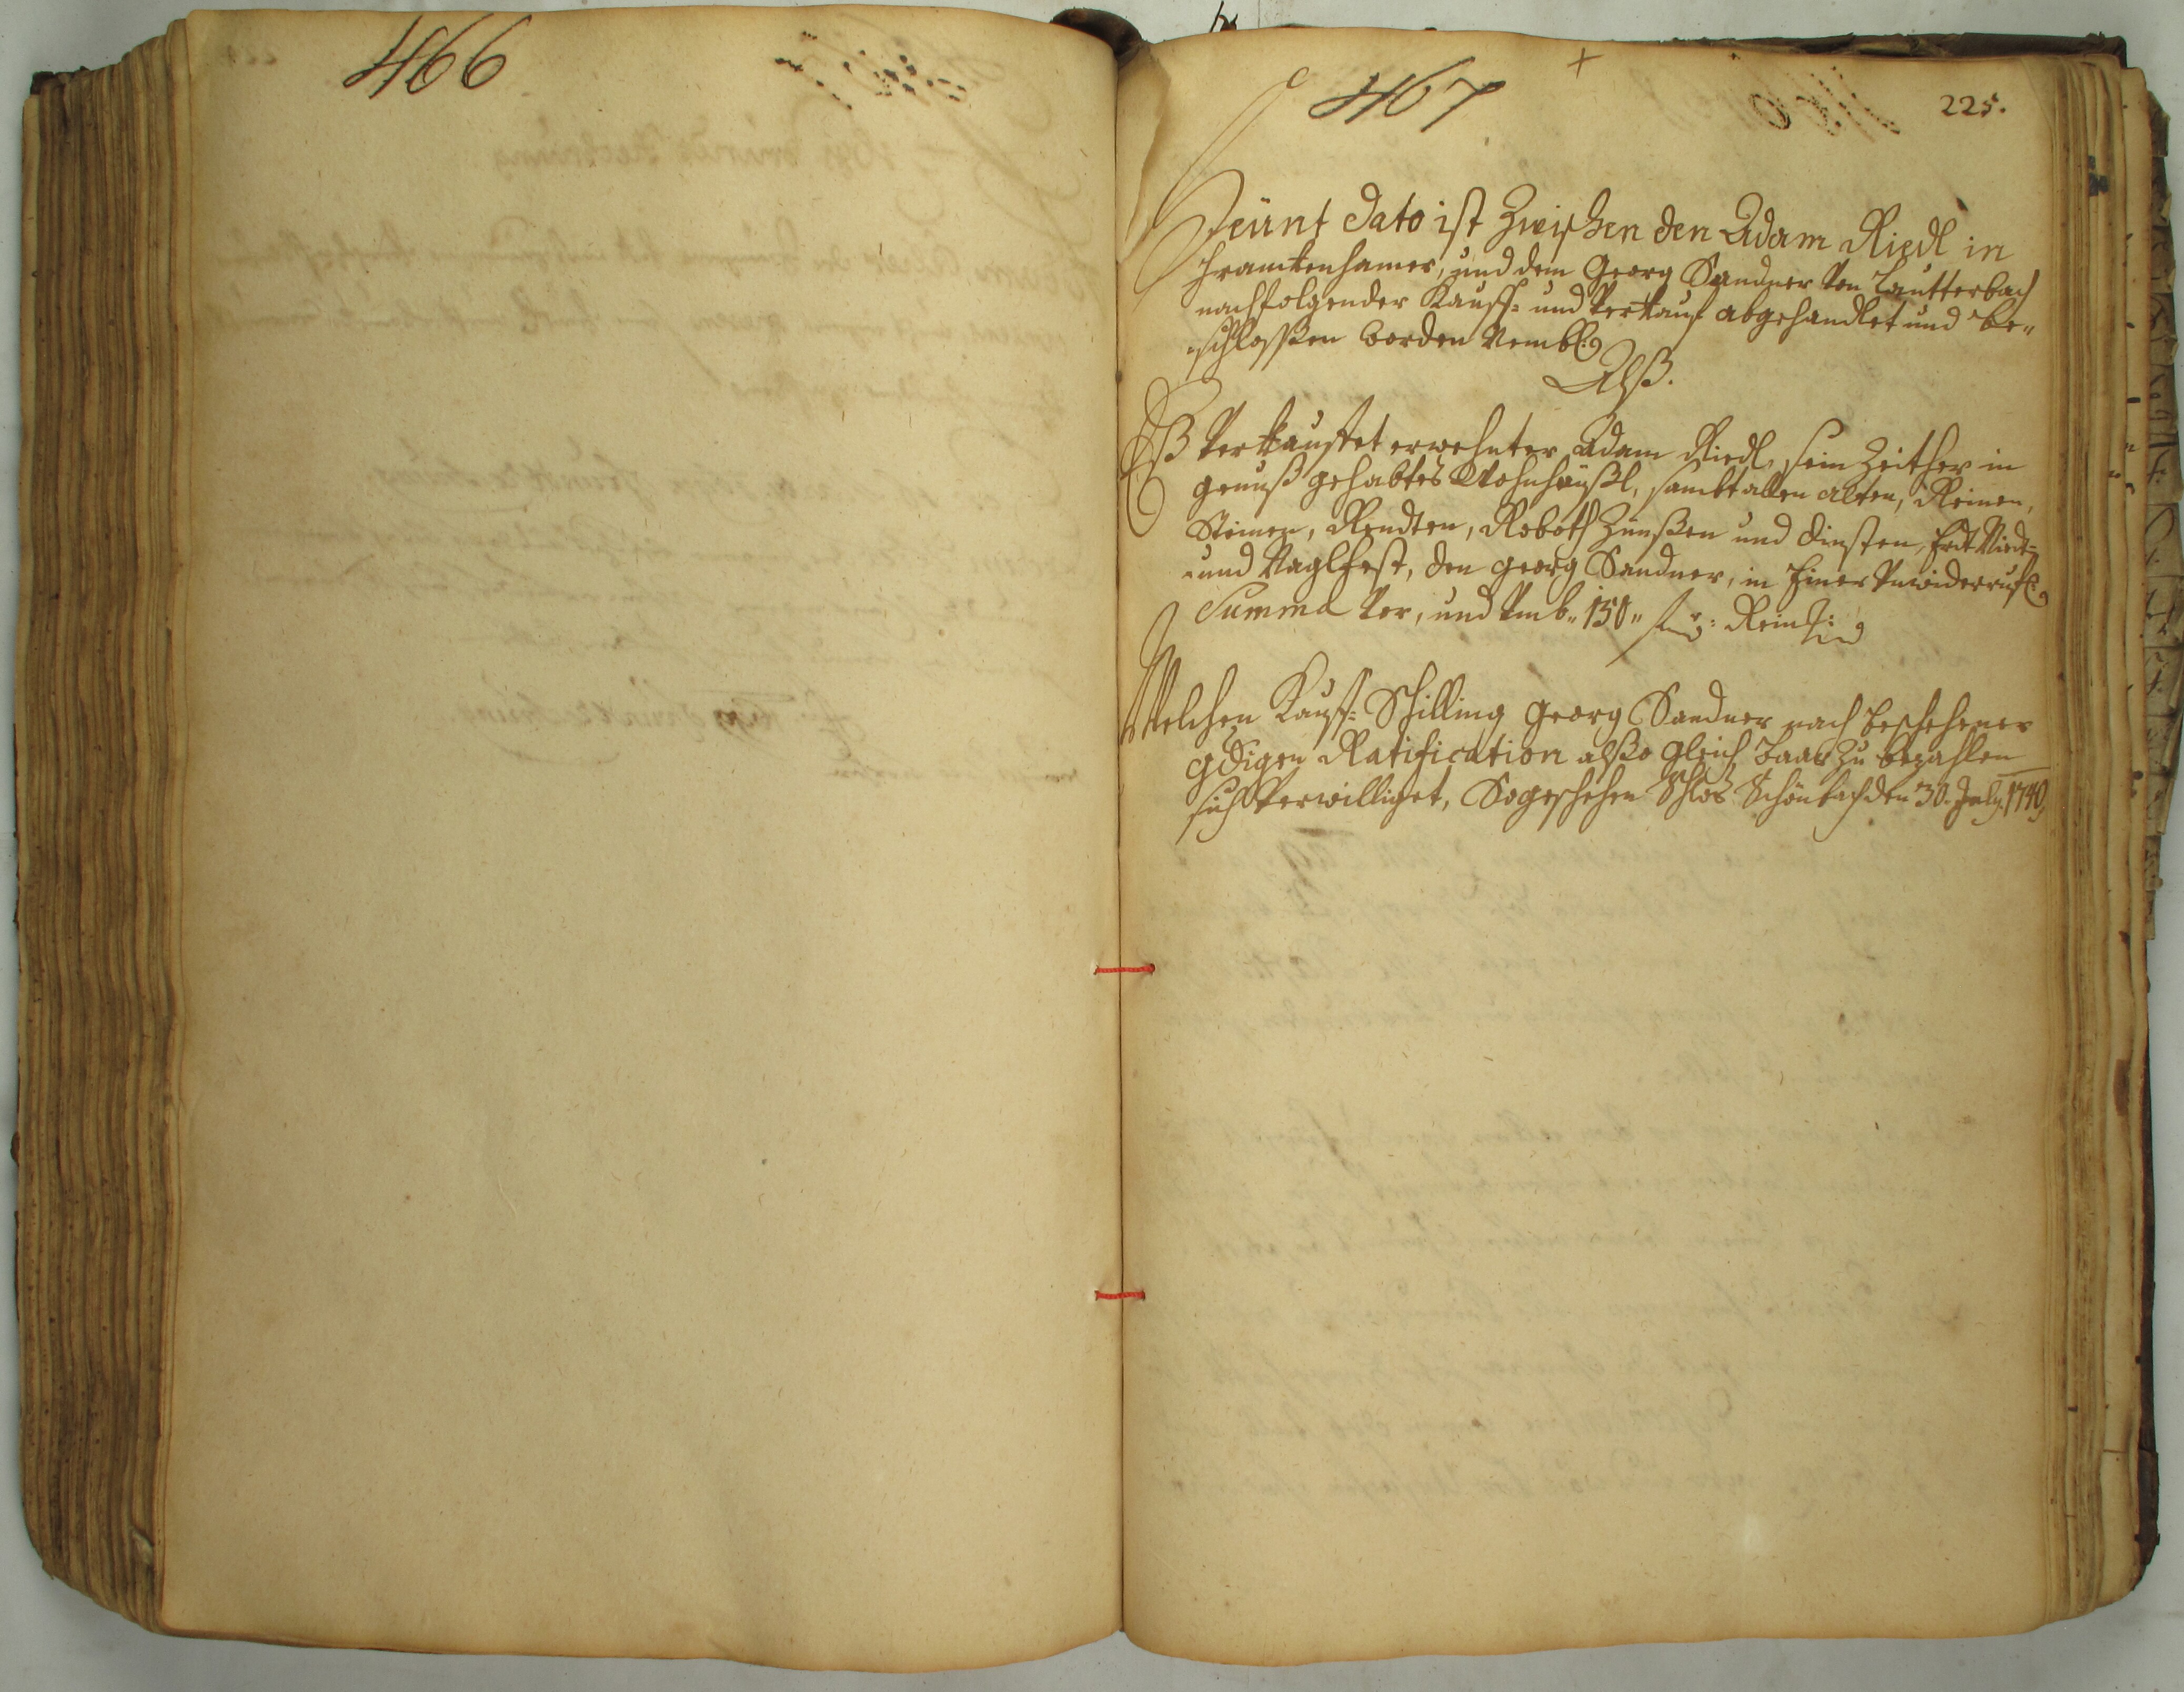 466
467
225.
Heünt dato ist Zwischen den Adam Riedl in
Franckenhamer, und dem Georg Sandner von Lautterbach
nachfolgender Kauff- und Verkauf abgehandlet und be„
„schlossen worden Nembl:
Alß.
Eß Verkauffet erwehnter Adam Riedl, sein Zeither in
genuß gehabtes Wohnhäußl, sambt allen alten, Reinen,
Steinen, Rendten, Roboth Zünßen und dinsten, Erdt Niedt-
und Naglfest, den Georg Sandner, in Einer Unwiderrufl:
Summa Per, und Umb„ 150„ fl: Rein:
Welchen Kauff- Schilling Georg Sandner nach beschehener
gdigen Ratification alßo gleich baar zu bezahlen
sich Verwilliget, So geschehen Schlos Schönbach den 30. July. 1740